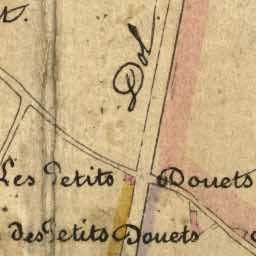 Dol.
Les Petits Douets
des Petits Douets